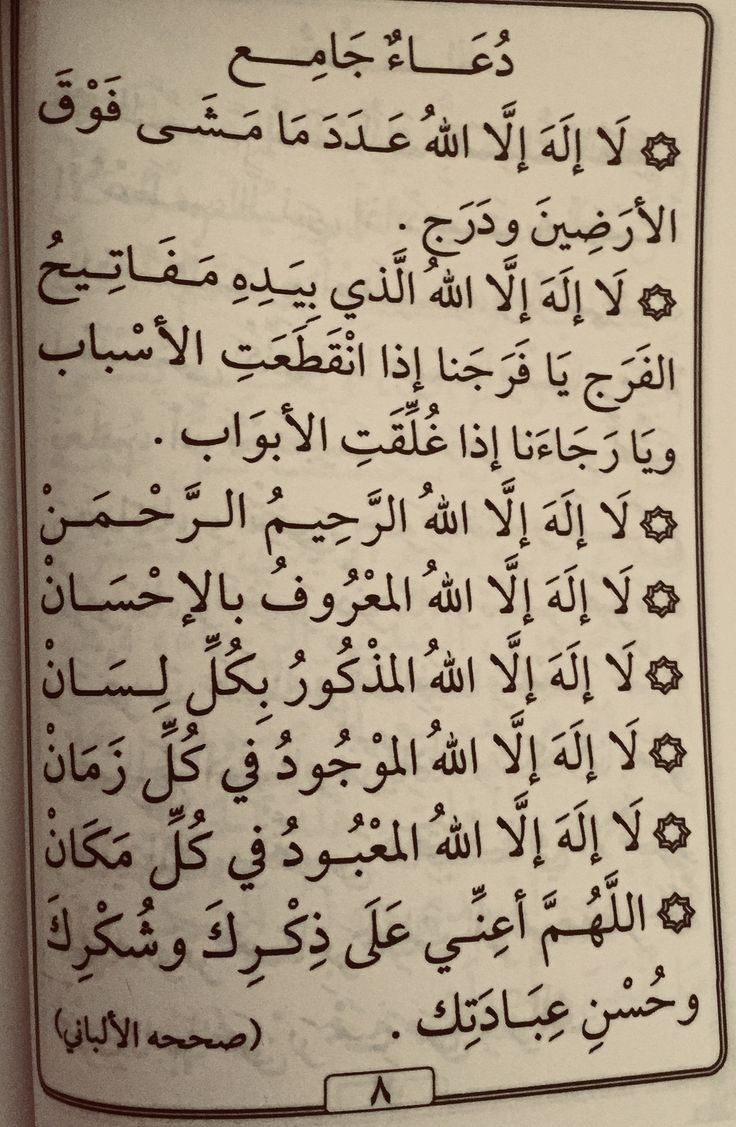 دُعَـــاءٌ جَامِـــع
۞ لَا إلَهَ إلَّا اللهُ عَـدَدَ مَا مَـشَـى فَوْقَ
الأرَضِينَ ودَرَج .
۞ لَا إلَهَ إلَّا اللهُ الَّذي بِيَدِهِ مَـفَـاتِـيحُ
الفَرَج يَا فَرَجَنا إذا انْقَطَعَتِ الأسْباب
ويَا رَجَاءَنا إذا غُلِّقَتِ الأبوَاب .
۞ لَا إلَهَ إلَّا اللهُ الرَّحِيـمُ الـرَّحْـمَـنْ
۞ لَا إلَهَ إلَّا اللهُ المعْرُوفُ بالإحْسَـانْ
۞ لَا إلَهَ إلَّا اللهُ المذْكُورُ بِكُلِّ لِـسَـانْ
۞ لَا إلَهَ إلَّا اللهُ الموْجُودُ في كُلِّ زَمَانْ
۞ لَا إلَهَ إلَّا اللهُ المعْبُـودُ في كُلِّ مَكَانْ
۞ اللَّهُـمَّ أعِنِّـي عَلَى ذِكْـرِكَ وشُكْرِكَ
وحُسْنِ عِبَـادَتِك . (صححه الألباني)
٨